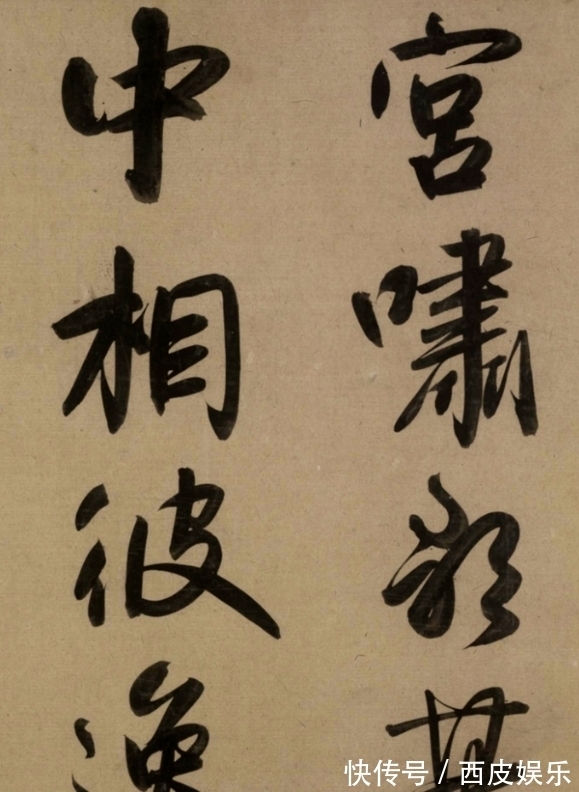 宮嘯歌其
中相彼
快传号/西皮娱乐